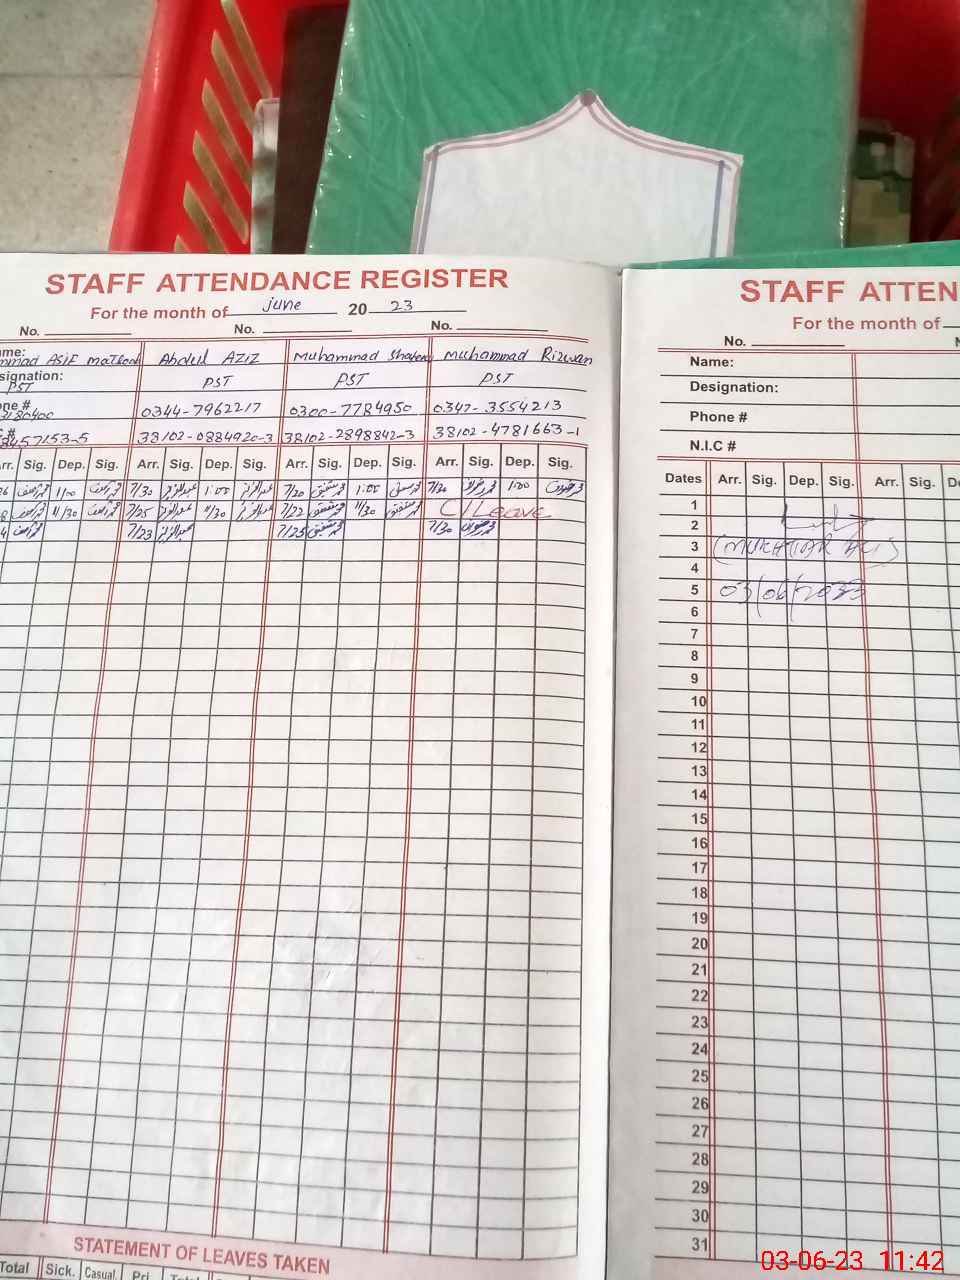 STAFF ATTENDANCE REGISTER
For the month of june 20 23
No. No. No.
ASIF Abdul AZIZ Muhammad Muhammad Rizwan
PST PST PST PST
0344-7962217 0300-7784950 0347-3554213
57153-5 38102-0884920-3 38102-2898842-3 38102-4781663-1
Arr. Sig. Dep. Sig. Arr. Sig. Dep. Sig. Arr. Sig. Dep. Sig. Arr. Sig. Dep. Sig.
1/00 7/30 عبدالعزیز 1:00 عبدالعزیز 7/20 1:00 7/20 1:00
11/30 7/25 عبدالعزیز 11/30 عبدالعزیز 7/22 11/30 C/Leave
7/23 عبدالعزیز 7/25 7/30
STATEMENT OF LEAVES TAKEN
Total Sick. Casual. Pri. Total Sick.
STAFF ATTEN
For the month of
No.
Name:
Designation:
Phone #
N.I.C #
Dates Arr. Sig. Dep. Sig. Arr. Sig. De
1
2
3 (MUKHTIAR ALI)
4
5 03/06/2023
6
7
8
9
10
11
12
13
14
15
16
17
18
19
20
21
22
23
24
25
26
27
28
29
30
31
03-06-23 11:42